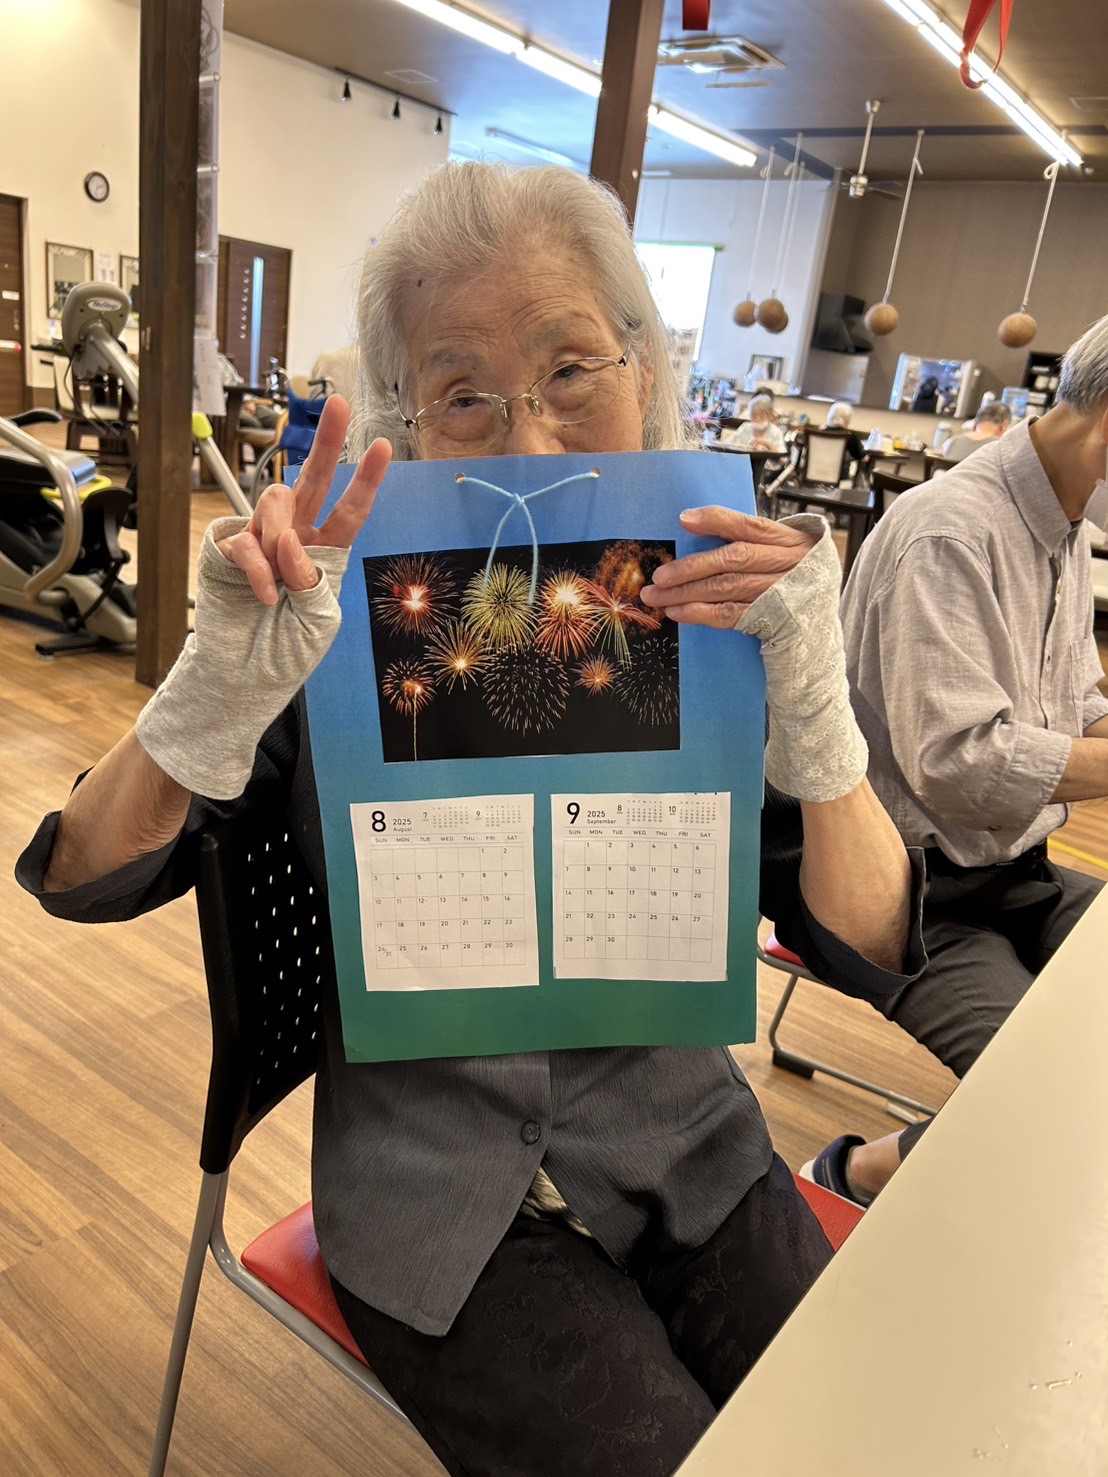 8 2025 August 7 9
SUN MON TUE WED THU FRI SAT
1 2
3 4 5 6 7 8 9
10 11 12 13 14 15 16
17 18 19 20 21 22 23
24 31 25 26 27 28 29 30
9 2025 September 8 10
SUN MON TUE WED THU FRI SAT
1 2 3 4 5 6
7 8 9 10 11 12 13
14 15 16 17 18 19 20
21 22 23 24 25 26 27
28 29 30